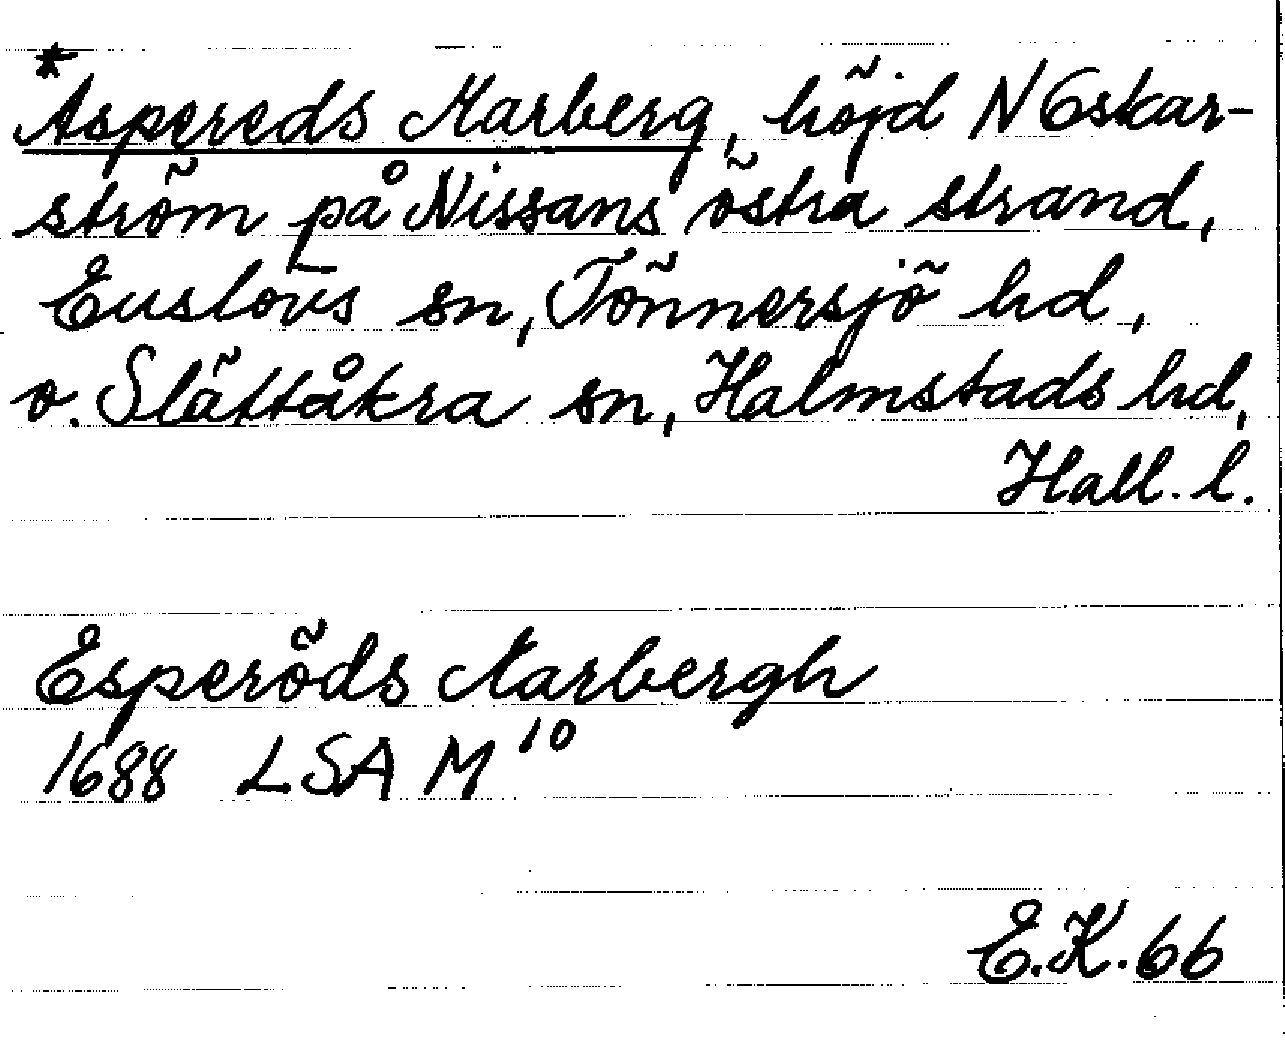 *Aspereds Marberg, höjd N Oskar-
ström på Nissans östra strand,
Enslövs sn, Tönnersjö hd,
o. Slättåkra sn, Halmstads hd,
Hall. l.
Esperöds Marbergh
1688 LSA M 10
E.K. 66